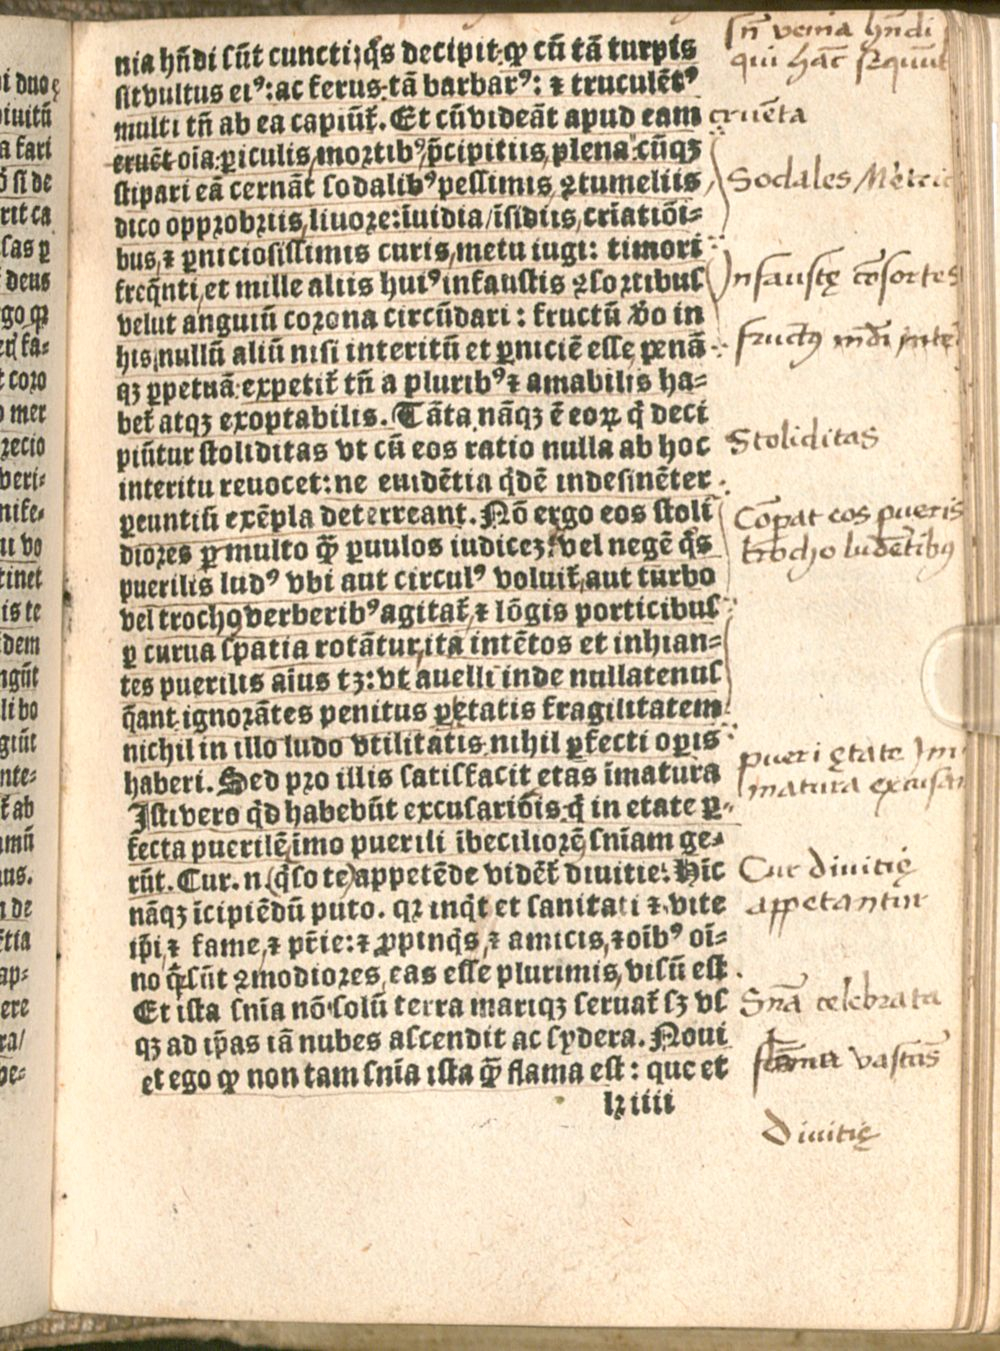 nia hñdi sũt cuncti, q̃s decipit: ꝙ cũ tã turpis
sit vultus eiꝰ: ac ferus, tã barbarꝰ: ⁊ truculẽtꝰ
multi tñ ab ea capiũt᷑. Et cũ videãt apud eam
eruẽt oĩa: ꝑiculis, moꝛtibꝰ, p̃cipitiis, plena: cũqꝫ
stipari eã cernãt sodalibꝰ pessimis, ꝯtumeliis
dico oppꝛobꝛiis, liuoꝛe: ĩuidia / ĩsidiis, crĩatiõi-
bus, ⁊ ꝑniciosissimis curis, metu iugi: timori
freq̃nti, et mille aliis huiꝰ infaustis ꝯsoꝛtibus
velut anguiũ coꝛona circũdari: fructũ v̾o in
his, nullũ aliũ nisi interitũ et ꝑniciẽ esse, penã
qꝫ ꝑpetuã: expetit᷑ tñ a pluribꝰ ⁊ amabilis ha-
bet᷑ atqꝫ exoptabilis. Tãta nãqꝫ ẽ eoꝝ q̇ deci
piũtur stoliditas vt cũ eos ratio nulla ab hoc
interitu reuocet: ne euidẽtia q̇dẽ indesinẽter
ꝑeuntiũ exẽpla deterreant. Nõ ergo eos stoli
dioꝛes ꝑ multo q̃ꝫ ꝑuulos iudicez? vel negẽ q̃s
puerilis ludꝰ vbi aut circulꝰ voluit᷑, aut turbo
vel trochꝰ verberibꝰ agitat᷑, ⁊ lõgis porticibus
ꝑ curua spatia rotãtur, ita intẽtos et inhian-
tes puerilis aĩus tꝫ: vt auelli inde nullatenus
q̃ant ignoꝛãtes penitus ꝑ etatis fragilitatem
nichil in illo ludo vtilitatis nihil ꝑfecti oꝑis
haberi. Sed pꝛo illis satisfacit etas ĩmatura
Isti vero q̇d habebũt excusatiõis q̇ in etate ꝑ-
fecta puerilẽ, imo puerili ĩbecilioꝛẽ snĩam ge-
rũt. Cur. n. (q̃so te) appetẽde vidẽt᷑ diuitie: Hĩc
nãqꝫ ĩcipiẽdũ puto. qꝛ inq̇t et sanitati ⁊ vite
ip̃i, ⁊ fame, ⁊ pr̃ie: ⁊ ꝓpinq̇s, ⁊ amicis, ⁊ oĩbꝰ oĩ-
no q̃ sũt ꝯmodioꝛes, eas esse plurimis, visũ est
Et ista snĩa nõ solũ terra mariqꝫ seruat᷑ sꝫ vs
qꝫ ad ip̃as iã nubes ascendit ac sydera. Noui
et ego ꝙ non tam snĩa ista q̃ꝫ flama est: que et
lꝛ iiii
Sñ venia hñdi
qui hãc sequũt
cruẽta
Sodales
Infaustę cõsortes
fructꝰ
Stoliditas
Cõpat eos pueris
trocho ludẽtibꝰ
pueri ętate Im
matura excusãt
Cur diuitię
appetantur
Snĩa celebrata
vastãs
Diuitię